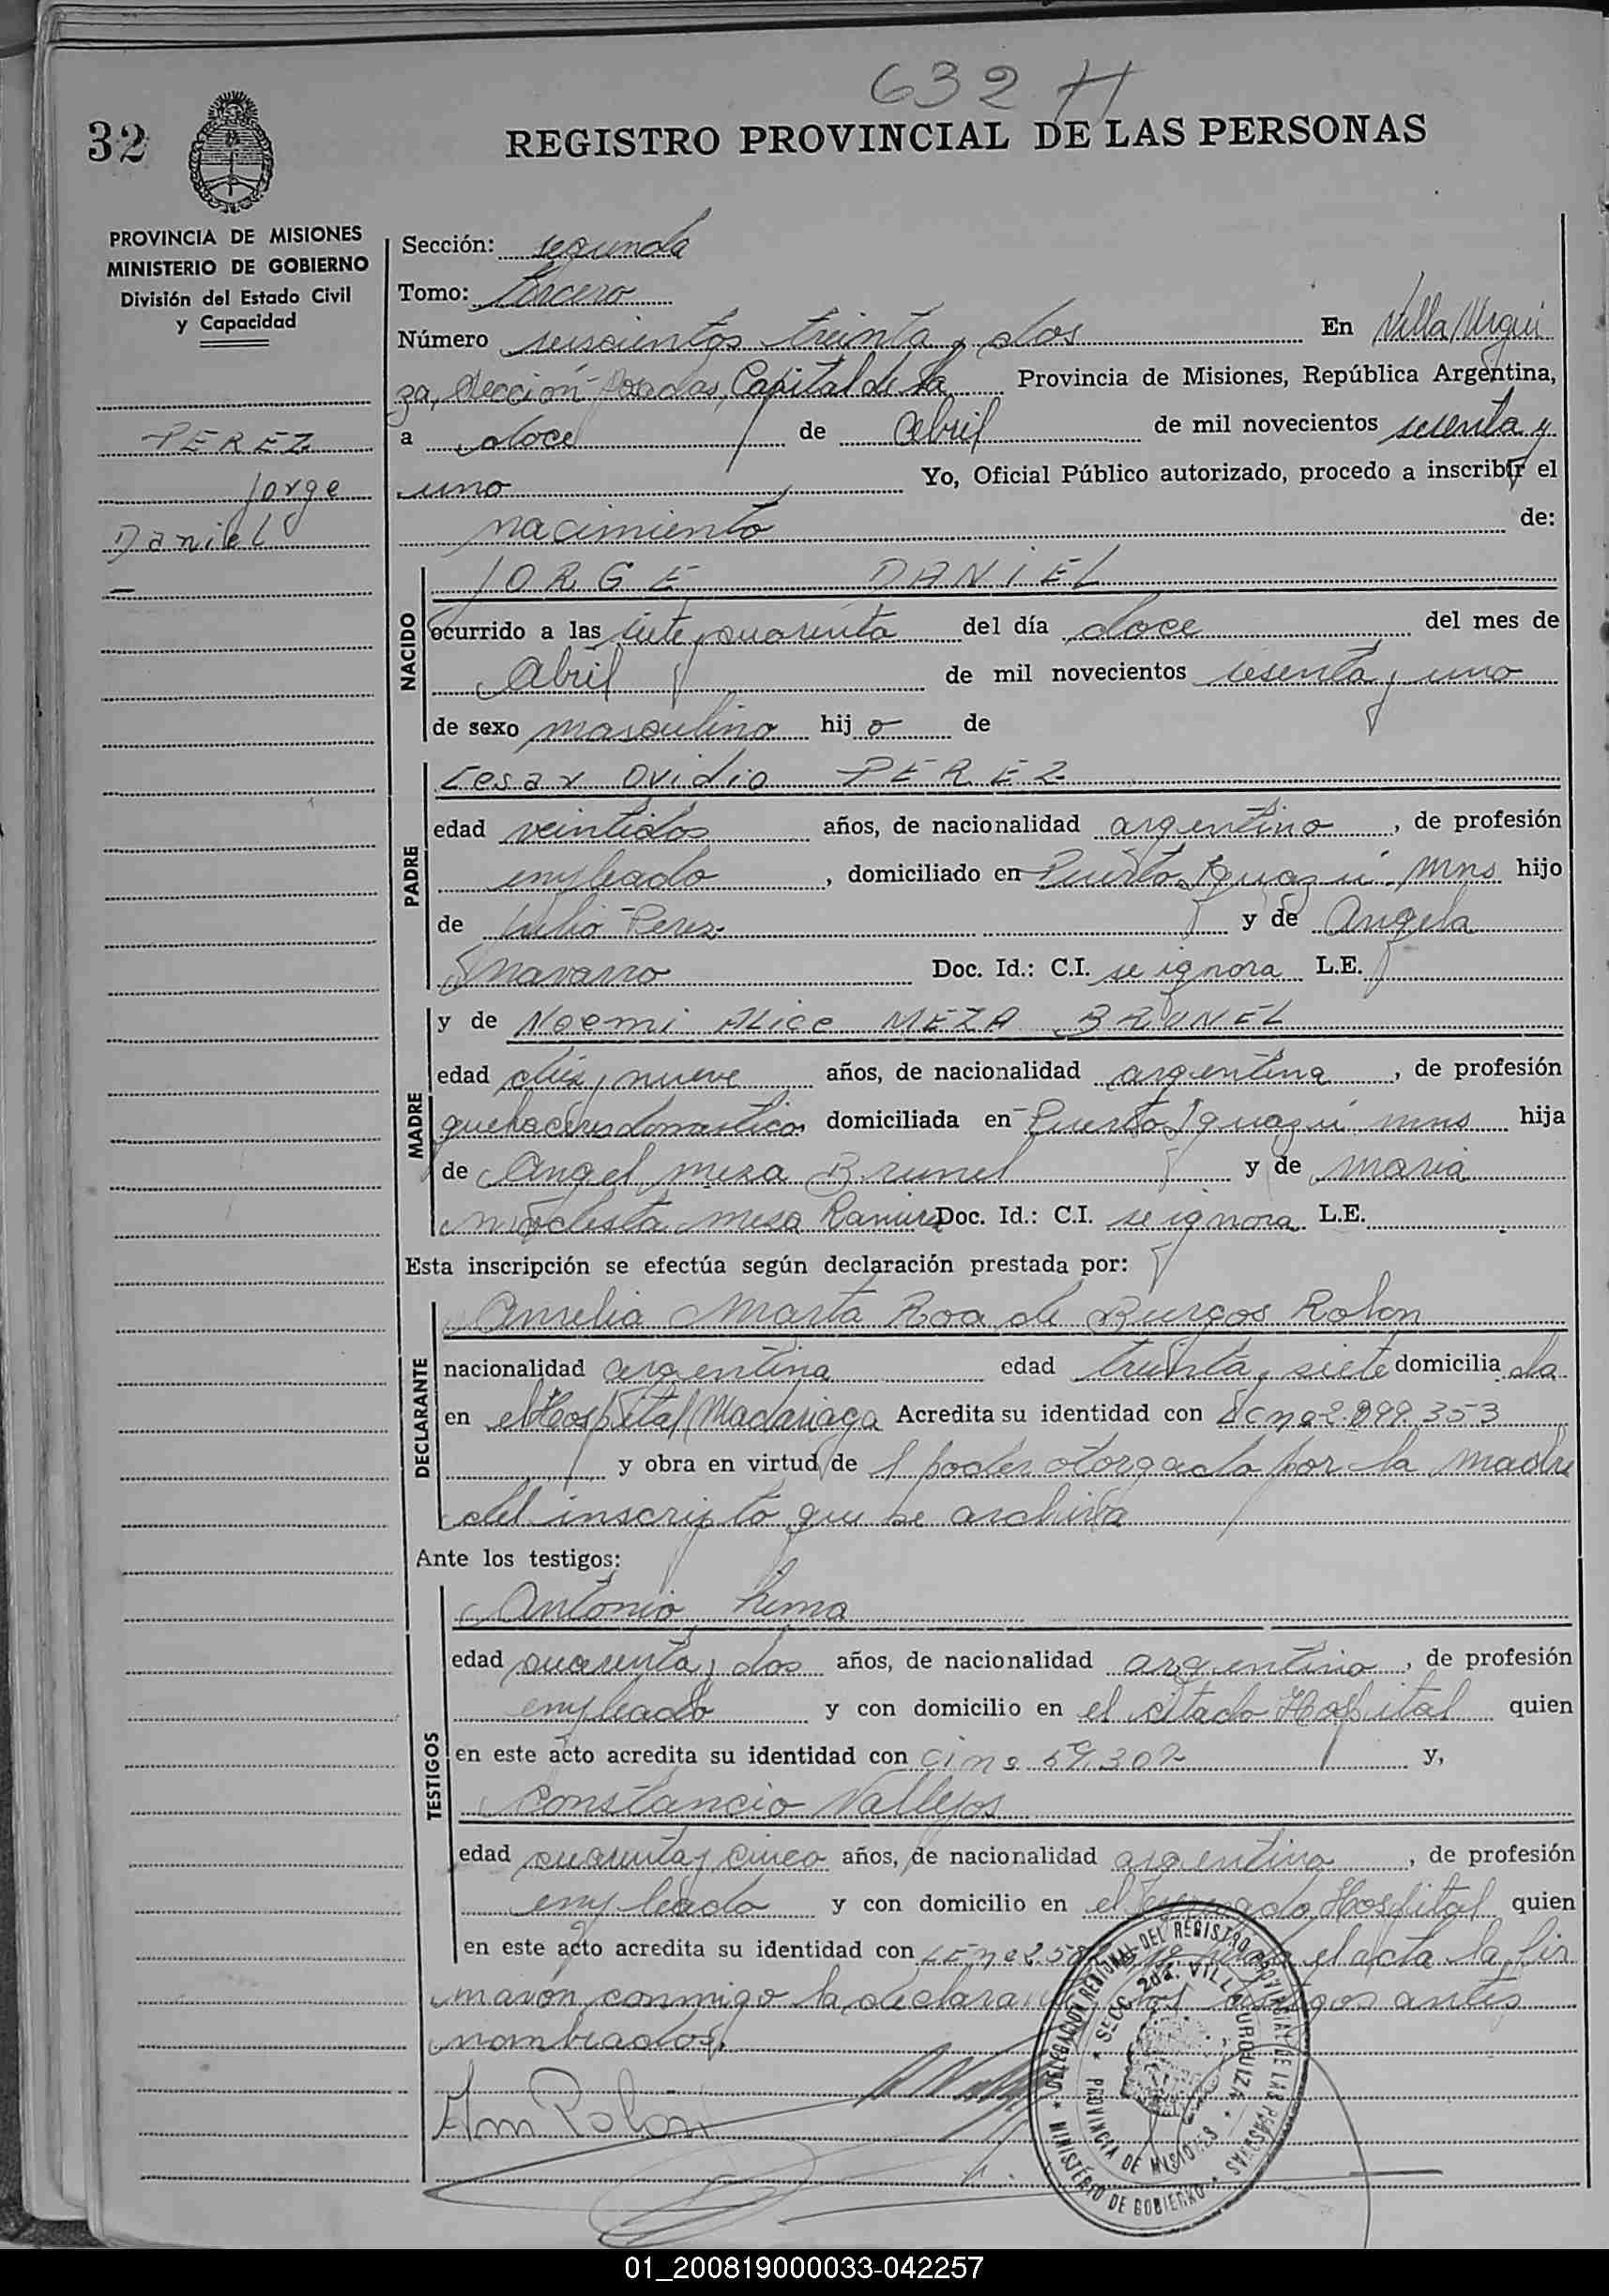 632 H
32
REGISTRO PROVINCIAL DE LAS PERSONAS
PROVINCIA DE MISIONES
MINISTERIO DE GOBIERNO
División del Estado Civil
y Capacidad
PEREZ
Jorge
Daniel
Sección: segunda
Tomo: tercero
Número seiscientos treinta y dos En Villa Urqui
za, Sección Posadas, Capital de la Provincia de Misiones, República Argentina,
a doce de Abril de mil novecientos sesenta y
uno Yo, Oficial Público autorizado, procedo a inscribir el
nacimiento de:
NACIDO
JORGE DANIEL
ocurrido a las siete y cuarenta del día doce del mes de
Abril de mil novecientos sesenta y uno
de sexo masculino hijo de
PADRE
Cesar Ovidio PEREZ
edad veintidos años, de nacionalidad argentino, de profesión
empleado, domiciliado en Puerto Iguazú mns hijo
de Julio Perez y de Angela
Navarro Doc. Id.: C.I. se ignora L.E.
MADRE
y de Noemi Alice MEZA BRUNEL
edad diez y nueve años, de nacionalidad argentina, de profesión
quehaceres domesticos domiciliada en Puerto Iguazú mns hija
de Angel meza Brunel y de maria
modesta mesa Ramirez Doc. Id.: C.I. se ignora L.E.
Esta inscripción se efectúa según declaración prestada por:
DECLARANTE
Amelia Marta Roa de Burgos Rolon
nacionalidad argentina edad treinta y siete domiciliada
en el Hospital Madariaga Acredita su identidad con 353
y obra en virtud del poder otorgado por la madre
del inscripto que se archiva
Ante los testigos:
TESTIGOS
Antonio Lima
edad cuarenta y dos años, de nacionalidad argentino, de profesión
empleado y con domicilio en el citado Hospital quien
en este acto acredita su identidad con 59.302 y,
Constancio Vallejos
edad cuarenta y cinco años, de nacionalidad argentino, de profesión
empleado y con domicilio en el Hospital quien
en este acto acredita su identidad con el acta la fir
maron conmigo la declarante y los testigos antes
nombrados.
Am Rolon
DELEGACION REGIONAL DEL REGISTRO PROVINCIAL DE LAS PERSONAS
MINISTERIO DE GOBIERNO
SECC. 2da. VILLA URQUIZA
PROVINCIA DE MISIONES
01_200819000033-042257